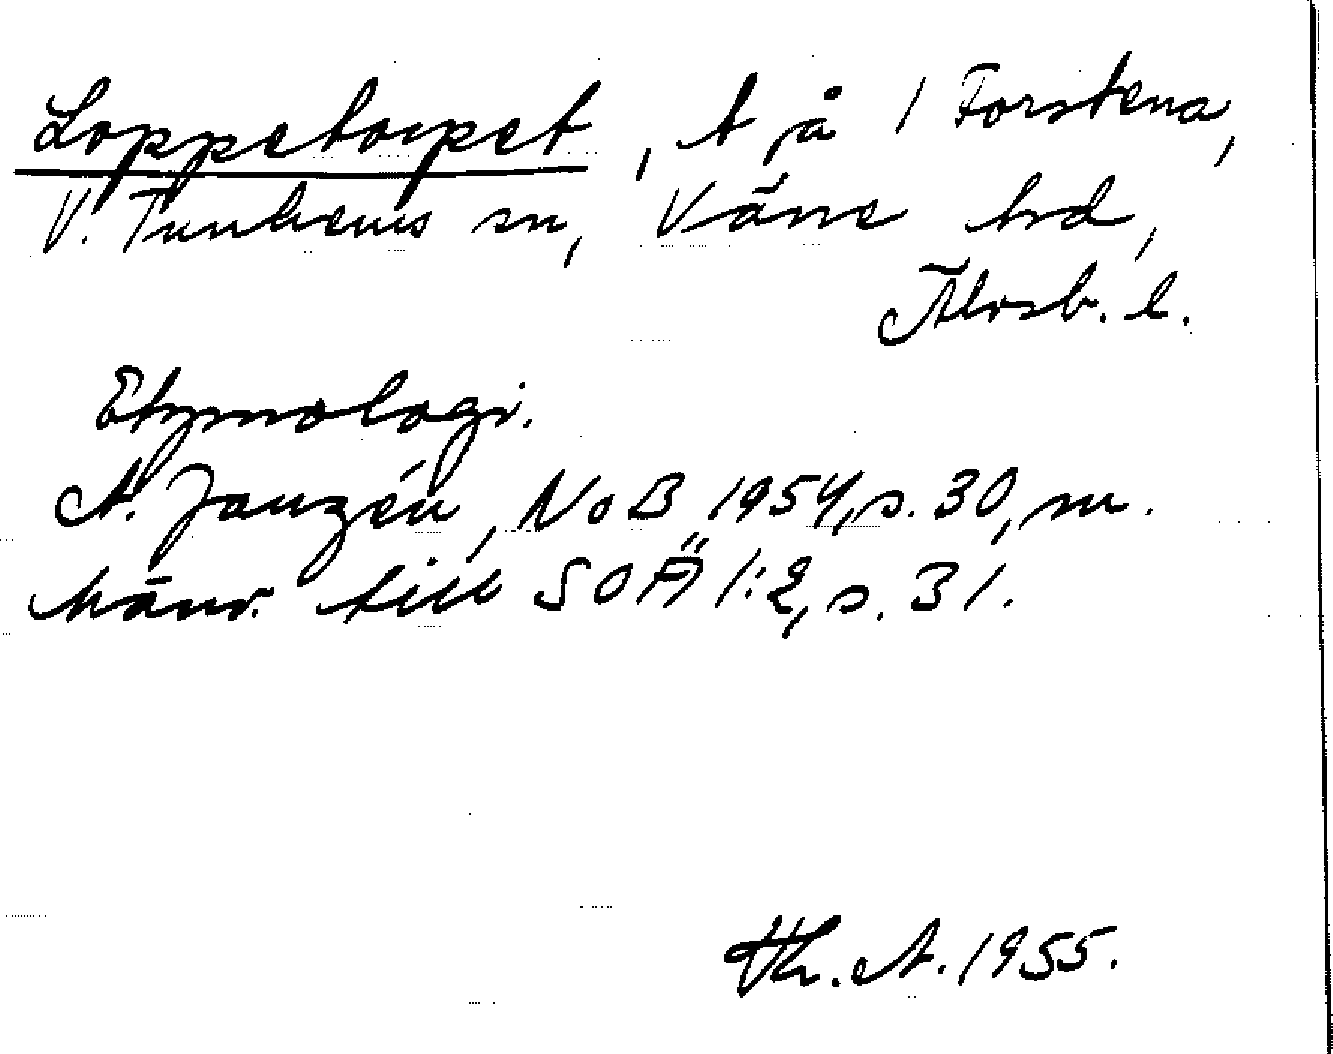 Loppetorpet, t på 1 Forstena,
V. Tunhems sn, Väne hd,
Älvsb. l.
Etymologi.
A. Janzén, NoB 1954, s. 30, m.
hänv. till SOÄ 1:2, s. 31.
Th. A. 1955.